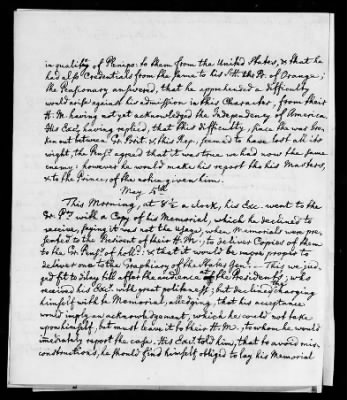 in quality of Plenipo: to them from the United States, & that he
had also Credentials from the same to his S.H. the Pr. of Orange;
the Pensionary answered, that he apprehended a difficulty
would arise against his admission in this Character, from their
H.M. having not yet acknowledged the Independency of America.
His Exc.y having replied, that this difficulty, since the war bro-
ken out between Gr. Brit. & this Rep., seemed to have lost all its
weight, the Pens.y agreed that it was true we had now the same
enemy: however he would make his report to his Masters,
& to the Prince, of the when given him.
May 5th
This Morning, at 8½ a clock, his Exc. went to the
Gr. P.ry with a Copy of his Memorial, which he declined to
receive, saying it was not the usage, when Memorials were pre-
sented to the President of their H.M., to deliver Copies of them
to the Gr. Pens.y of Holl.; & that it would be more proper to
deliver one to the Graphiary of the States Gen. — This we jud-
ged fit to delay till after the audience of the President; who
received his Exc.y with great politeness; but declined charging
himself with the Memorial, alledging, that his acceptance
would imply an acknowledgement, which he could not take
upon himself, but must leave it to their H.M., to whom he would
imediately report the case. His Exc.y told him, that to avoid mis-
constructions, he should find himself obliged to lay his Memorial